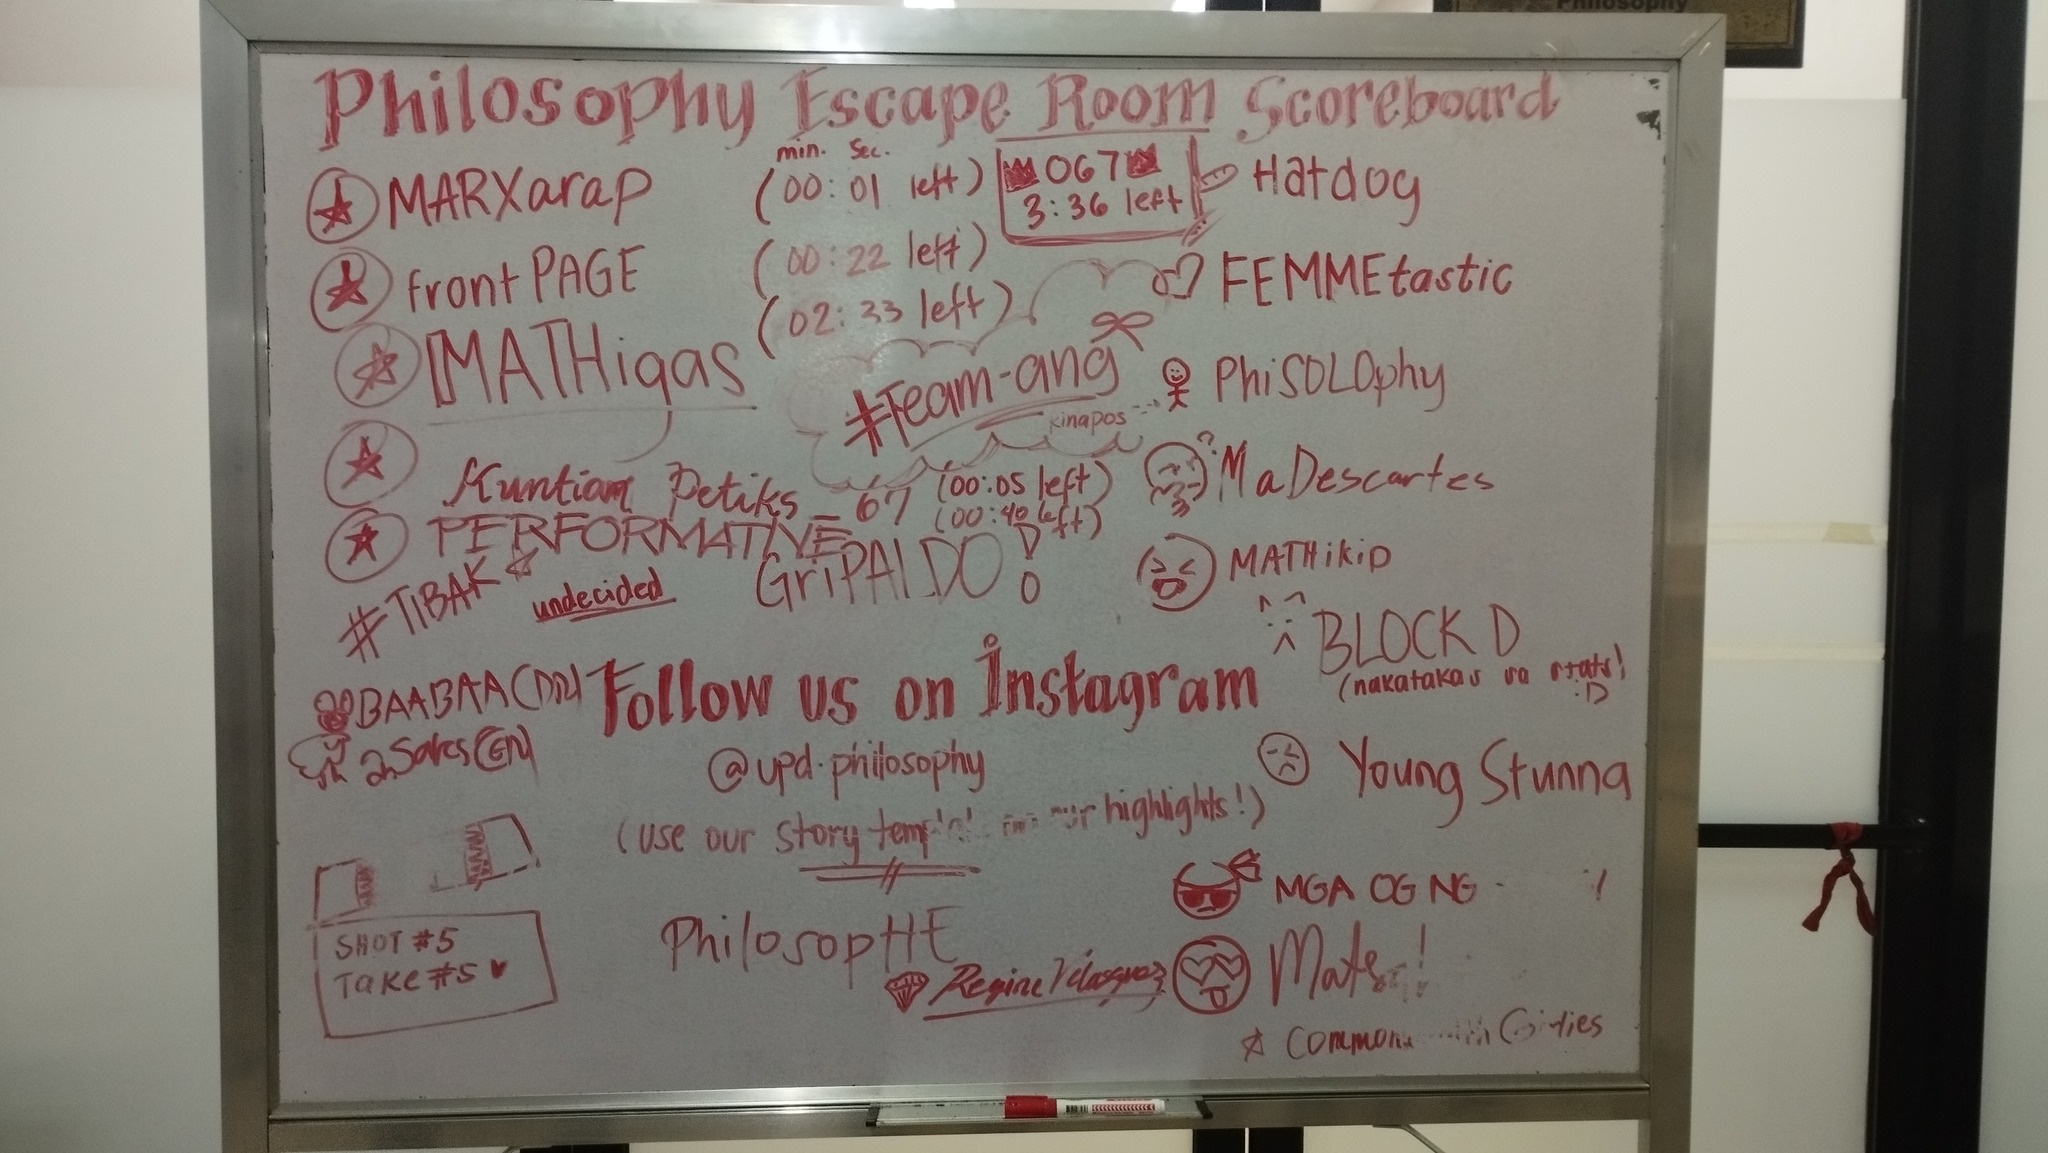 Philosophy
Philosophy Escape Room Scoreboard
min. sec.
MARXarap (00:01 left)
frontPAGE (00:22 left)
MATHigas (02:33 left)
067
3:36 left
#Team-ang
kinapos
Kuntiam Petiks - 67 (00:05 left)
PERFORMATIVE (00:40 left)
#TIBAK
undecided
GriPALDO!
BAABAA
2nSaks
Hatdog
FEMMEtastic
PhiSOLOphy
MaDescartes
MATHikip
BLOCK D
(nakatakas sa stats!
:D
Young Stunna
MGA OG NG
Mats !
Follow us on Instagram
@upd.philosophy
(use our story highlights!)
PhilosopHE
Regine Velasquez
Girlies
SHOT #5
Take #5